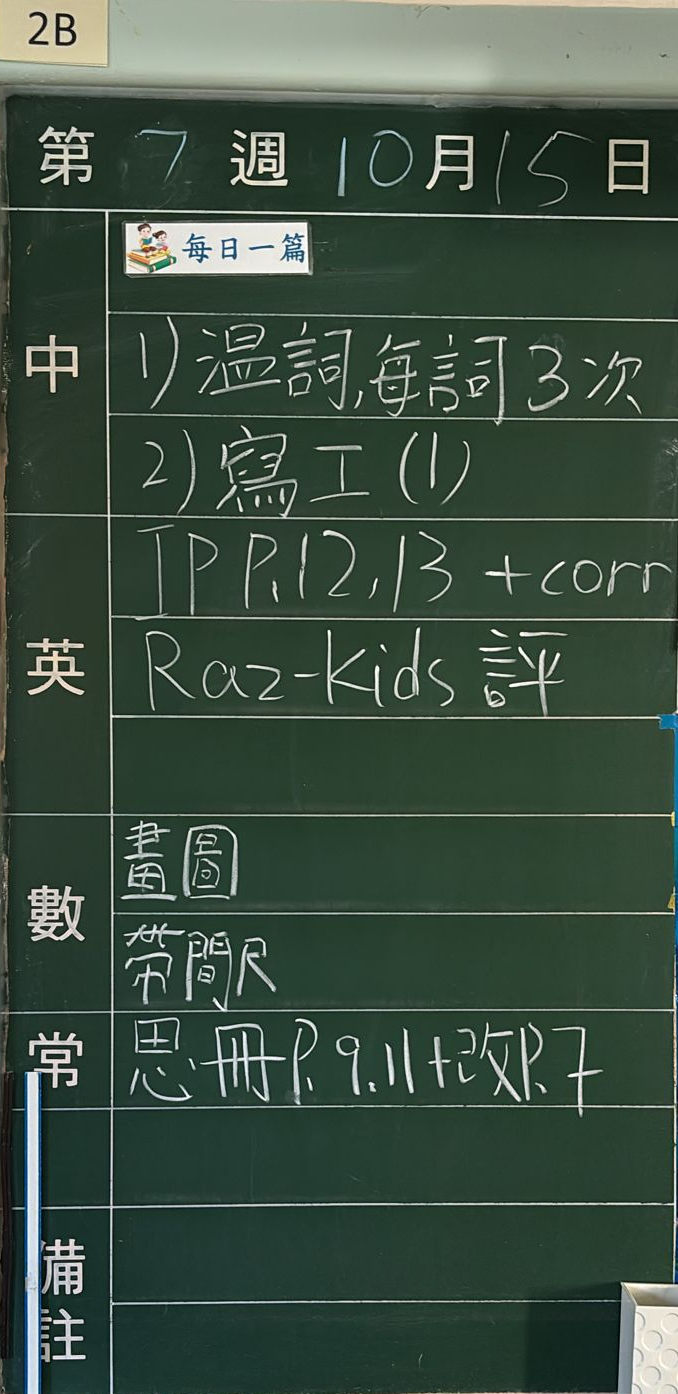 2B
第 7 週 10月15日
每日一篇
中
1) 溫詞,每詞3次
2) 寫工(1)
英
IP P.12,13 +corr
Raz-Kids 評
數
畫圖
帶間尺
常
思冊P.9,11+改P.7
備註